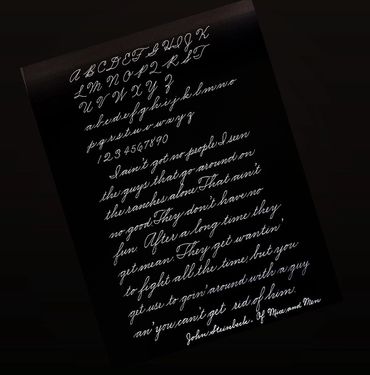 A B C D E F G H I J K
L M N O P Q R S T
U V W X Y Z
a b c d e f g h i j k l m n o
p q r s t u v w x y z
1 2 3 4 5 6 7 8 9 0
I ain't got no people I seen
the guys that go around on
the ranches alone That ain't
no good They don't have no
fun. After a long time they
get mean. They get wantin'
to fight all the time, but you
get use to goin' around with a guy
an' you can't get rid of him.
John Steinbeck. Of Mice and Men